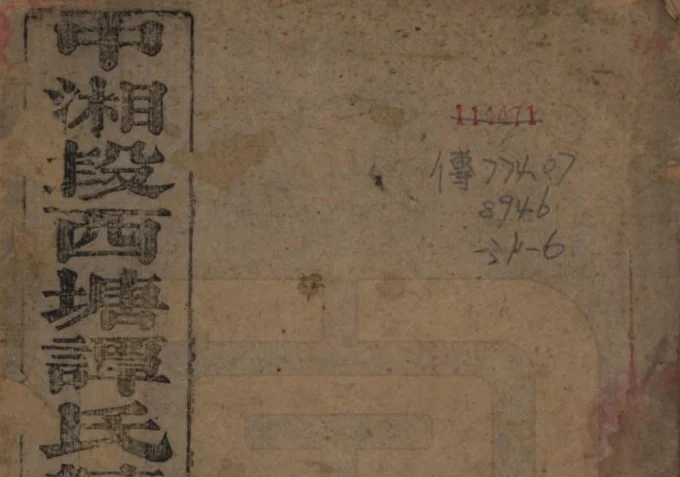 中湘段西塘譚氏
114471
傳774.07
8946